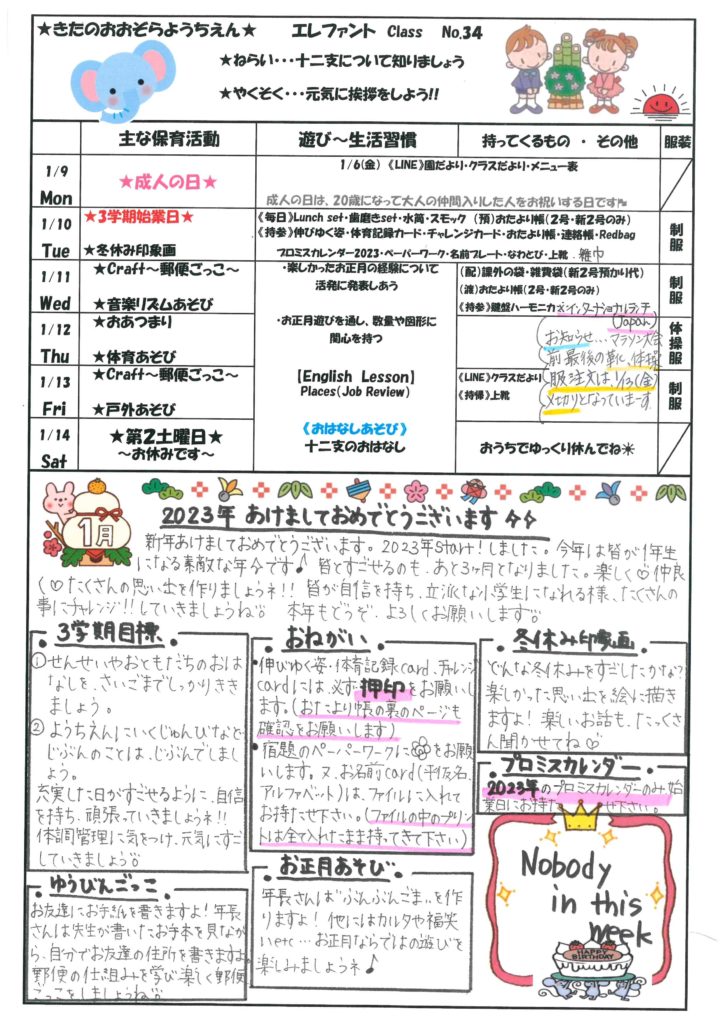 ★きたのおおぞらようちえん★ エレファント Class No.34
★ねらい・・・十二支について知りましょう
★やくそく・・・元気に挨拶をしよう!!
主な保育活動 遊び～生活習慣 持ってくるもの ・ その他 服装
1/9 Mon
★成人の日★
1/6(金) 《LINE》園だより・クラスだより・メニュー表
成人の日は、20歳になって大人の仲間入りした人をお祝いする日です
1/10 Tue
★3学期始業日★
★冬休み印象画
《毎日》Lunch set・歯磨きset・水筒・スモック (預)おたより帳(2号・新2号のみ)
《持参》伸びゆく姿・体育記録カード・チャレンジカード・おたより帳・連絡帳・Redbag
プロミスカレンダー2023・ペーパーワーク・名前プレート・なわとび・上靴・雑巾
制服
1/11 Wed
★Craft～郵便ごっこ～
★音楽リズムあそび
・楽しかったお正月の経験について
活発に発表しあう
(配)課外の袋・雑費袋(新2号預かり代)
(渡)おたより帳(2号・新2号のみ)
《持参》鍵盤ハーモニカ ※インターナショナルランチ
(Japan)
制服
1/12 Thu
★おあつまり
★体育あそび
・お正月遊びを通し、数量や図形に
関心を持つ
お知らせ…マラソン大会
前最後の靴、体操
服注文は、1/13(金)
〆切りとなっていまーす
体操服
1/13 Fri
★Craft～郵便ごっこ～
★戸外あそび
【English Lesson】
Places(Job Review)
《LINE》クラスだより
《持帰》上靴
制服
1/14 Sat
★第2土曜日★
～お休みです～
《おはなしあそび》
十二支のおはなし
おうちでゆっくり休んでね☀
1月
2023年 あけましておめでとうございます
新年あけましておめでとうございます。2023年Start!しました。今年は皆が1年生
になる素敵な年分です♪ 皆とすごせるのも、あと3ヶ月となりました。楽しく♡仲良
く♡たくさんの思い出を作りましょうネ!! 皆が自信を持ち、立派な小学生になれる様、たくさんの
事にチャレンジ!!していきましょうね 本年もどうぞ、よろしくお願いします
3学期目標
① せんせいやおともだちのおは
なしを、さいごまでしっかりきき
ましょう。
② ようちえんにいくじゅんびなど、
じぶんのことは、じぶんでしまし
ょう。
充実した日がすごせるように、自信
を持ち、頑張っていきましょうネ!!
体調管理に気をつけ、元気にすご
していきましょう
おねがい
・伸びゆく姿・体育記録card、チャレンジ
cardには、必ず押印をお願いし
ます。(おたより帳の裏のページも
確認をお願いします)
・宿題のペーパーワークに をお願
いします。又、お名前card(平仮名、
アルファベット)は、ファイルに入れて
お持たせ下さい。(ファイルの中のプリン
トは全て入れたまま持ってきて下さい)
冬休み印象画
どんな冬休みをすごしたかな?
楽しかった思い出を絵に描き
ますよ! 楽しいお話も、たっくさ
ん聞かせてね♡
プロミスカレンダー
2023年のプロミスカレンダーのみ始
業日にお持たせ下さい。
ゆうびんごっこ
お友達にお手紙を書きますよ! 年長
さんは先生が書いたお手本を見なが
ら、自分でお友達の住所を書きますよ。
郵便の仕組みを学び楽しく郵便
ごっこをしましょうね
お正月あそび
年長さんは"ぶんぶんごま"を作
りますよ! 他にはカルタや福笑
いetc…お正月ならではの遊びを
楽しみましょうネ♪
Nobody
in this
week
HAPPY BIRTHDAY